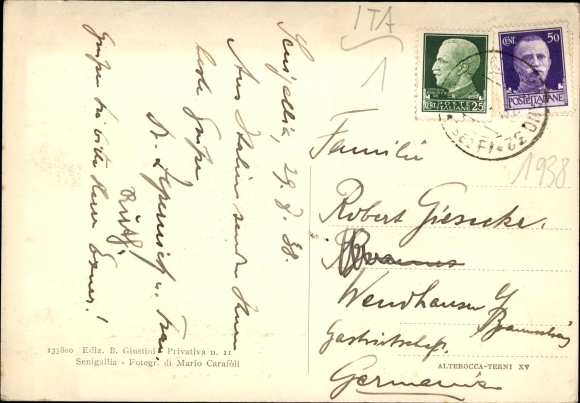 ITA
1
1938
CENT. 25
POSTE ITALIANE
CENT. 50
POSTE ITALIANE
Senigallia, 29. 7. 38.
Aus Italien sendet Ihnen
beste Grüße
Dr. u. Frau
Grüßen Sie bitte Herrn
Familie
Robert Giesecke.
Wendhausen
Gastwirtschaft.
Germania
133800 Ediz. B. Giustini - Privativa n. 11
Senigallia - Fotogr. di Mario Carafòli
ALTEROCCA-TERNI XV